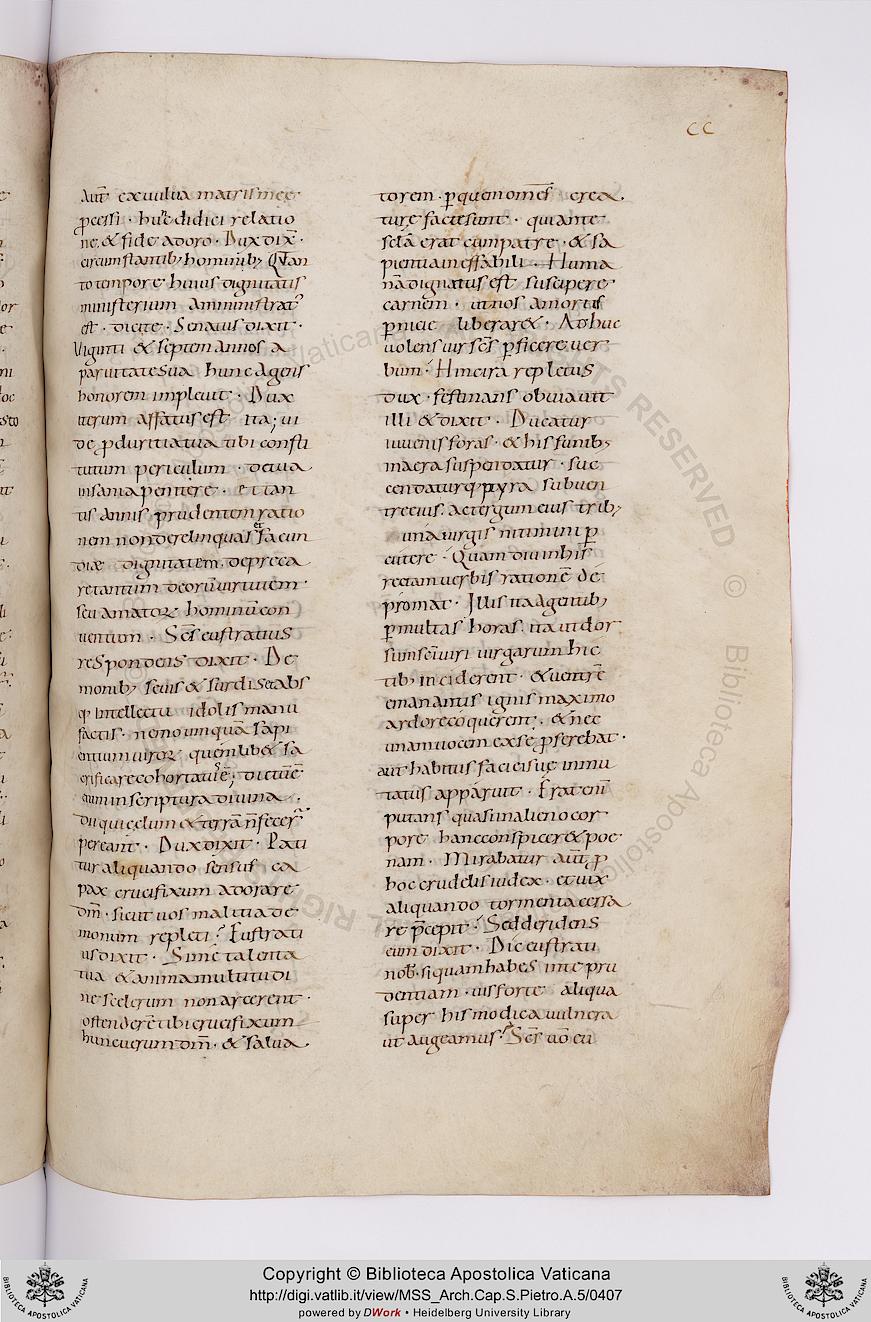 CC
aut̄ exuulua matris meę
p̱cessi · hūc didici relatio
ne, & fide adoro · Dux dix̄ ·
circumstantib; hominib; Quan
to tempore huius dignitatis
ministerium amministrat᷒
est · dicite · Senatus dixit ·
Viginti & septem annos a
paruitate sua hunc agens
honorem impleuit · Dux
iterum affatus est ita; ui
de ꝑduritia tua tibi consti
tutum periculum · de tua
insania penitere · et tan
tis annis prudentem ratio
nem non derelinquas et facun
diæ dignitatem. depreca
re tantum deorū uirtutem ·
seu amatorꝫ hominū con
uentum · Scs̄ eustratius
respondens dixit · De
monib; seuis & surdis & abs
q; intellectu idolis manu
factis · nemo umquā sapi
entium uirorꝫ quemlib& sa
crificare cohortatus ē; dictū ē
enim in scriptura diuina ·
Dii qui cęlum & terrā ñ fecer᷒
pereant · Dux dixit · Pati
tur aliquando sensus ca
pax crucifixum adorare
dm̄ · sicut uos malitia de
monum repleti? Eustrati
us dixit · Si mens talenta
tua & anima multitudi
ne scelerum non arcerent ·
ostenderē tibi crucifixum
hunc uerum dm̄ · & salua
torem · ꝑquem omēs crea
turę factę sunt · qui ante
sc̄la erat cum patre · & sa
pientia ineffabili · Huma
nā dignatus est suscipere
carnem · ut nos a mortis
ꝑnicie liberar& · Adhuc
uolens uir scs̄ ꝑficere uer
bum · Hinc ira repletus
dux · festinans obuiauit
illi & dixit · Ducatur
iuuenis foras · & his funib;
macra suspendatur · suc
cendaturq; pyra subuen
tre eius. ac tergum eius trib;
una uirgis nitimini ꝑ
cutere · Quam diu in his
rectam uerbis rationē de
promat · Illis ita agentib;
ꝑ multas horas. ita ut dor
sum sc̄i uiri uirgarum hic
tib; inciderent · & uentrē
emanantis ignis maximo
ardore coquerent; · & nec
unam uocem ex se ꝑferebat ·
aut habitus faciei suę inmu
tatus apparuit · Erat enī
putans quasi in alieno cor
pore hanc conspicer& poe
nam · Mirabatur aut̄ ꝑ
hoc crudelis iudex · et uix
aliquando tormenta cessa
re p̄cepit · Sed deridens
eum dixit · Dic eustrati
nob̄ · si quam habes in te pru
dentiam · uis forte aliqua
super his modica uulnera
ut augeamus? Scs̄ uō eu
Copyright © Biblioteca Apostolica Vaticana
http://digi.vatlib.it/view/MSS_Arch.Cap.S.Pietro.A.5/0407
powered by DWork • Heidelberg University Library